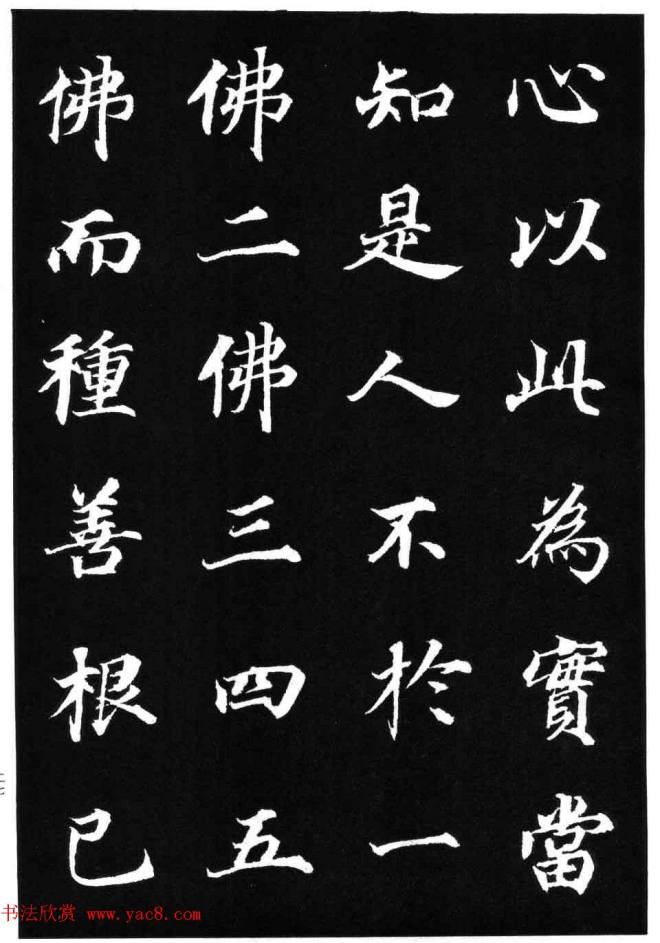 心以此為實當
知是人不於一
佛二佛三四五
佛而種善根已
书法欣赏 www.yac8.com